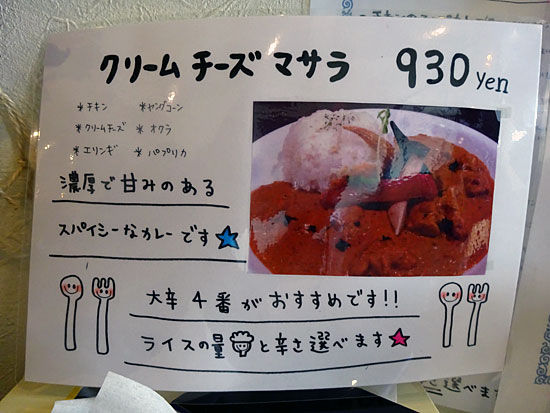 クリームチーズ マサラ 930 yen
*チキン *ヤングコーン
*クリームチーズ *オクラ
*エリンギ *パプリカ
濃厚で甘みのある
スパイシーなカレーです★
大辛4番がおすすめです!!
ライスの量と辛さ選べます★